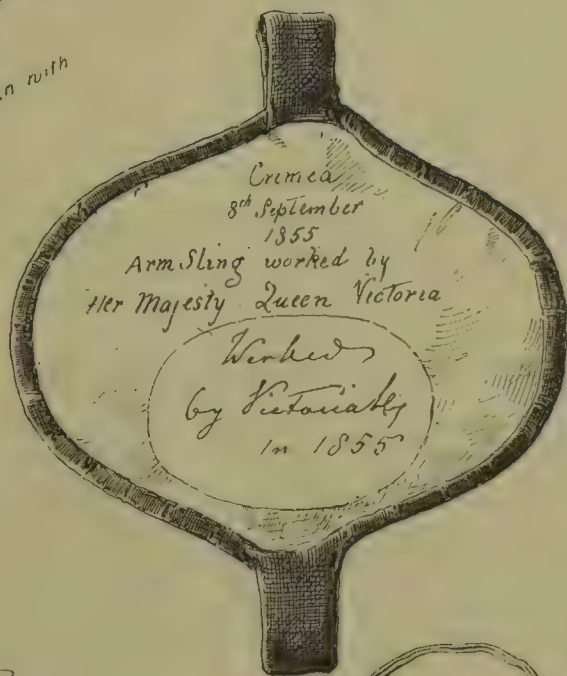 n with
Crimea
8th September
1855
Arm Sling worked by
Her Majesty Queen Victoria
Worked
by Victoria
In 1855